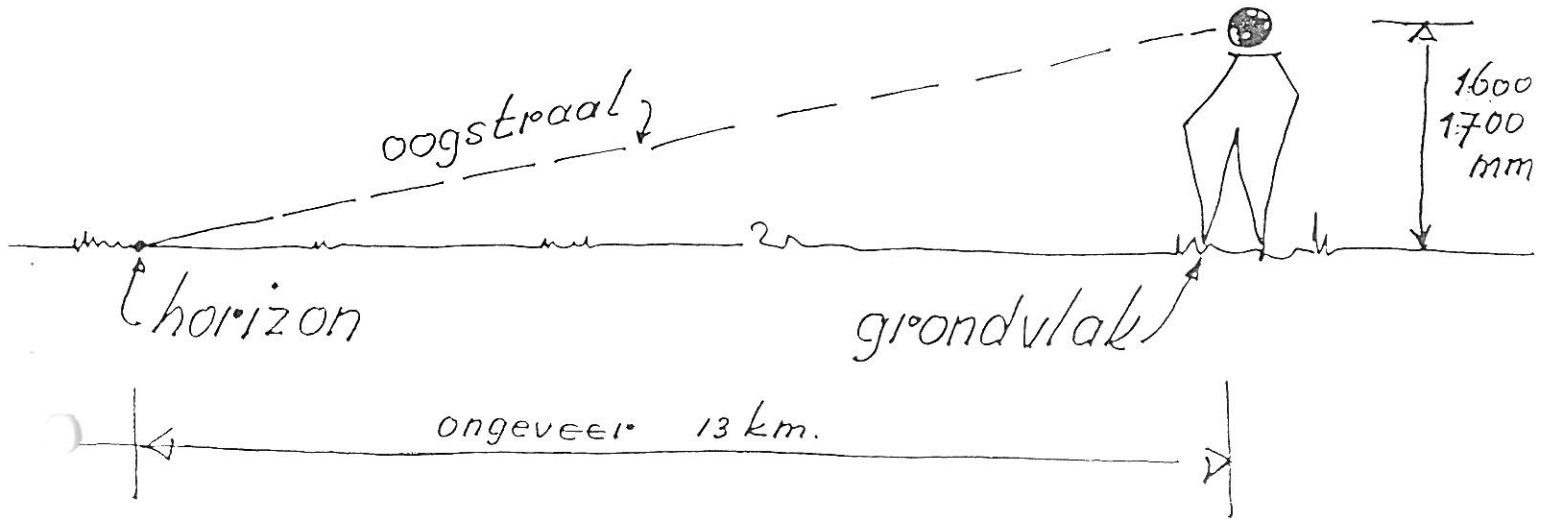 oogstraal
1600
1700
mm
horizon
grondvlak
ongeveer 13 km.